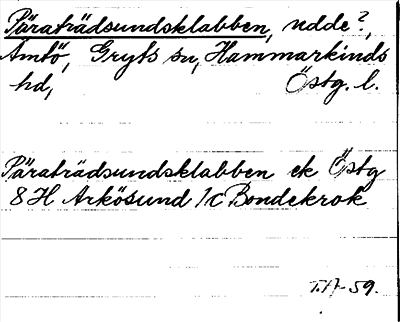 Päraträdsundsklabben, udde?,
Ämtö, Gryts sn, Hammarkinds
hd, Östg. l.
Päraträdsundsklabben ek Östg
8H Arkösund 1c Bondekrok
T.A-59.